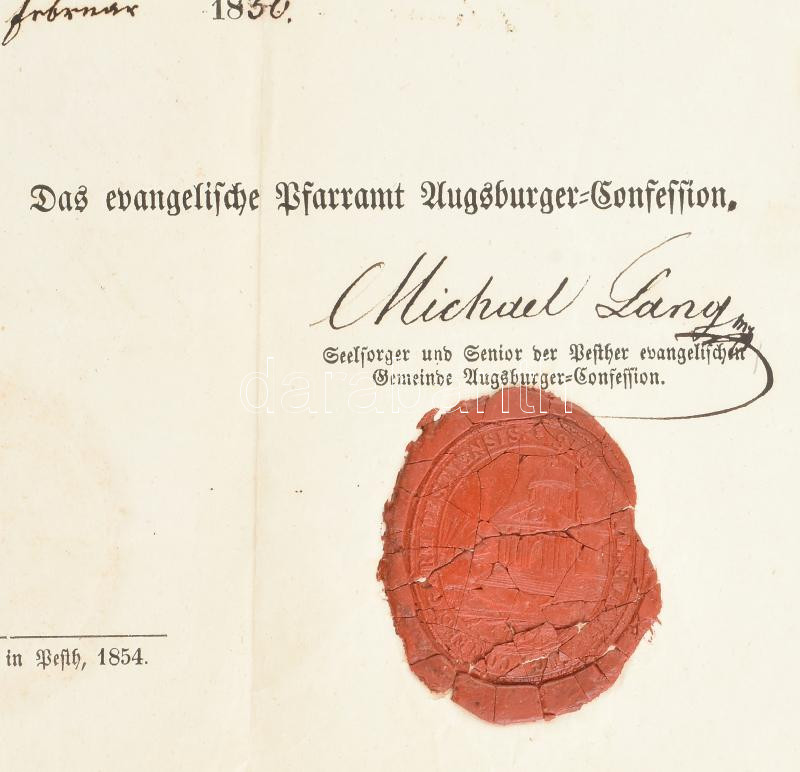 Februar 1856.
Das evangelische Pfarramt Augsburger-Confession.
Michael Lang
Seelsorger und Senior der Pesther evangelischen
Gemeinde Augsburger-Confession.
darabanth
in Pesth, 1854.